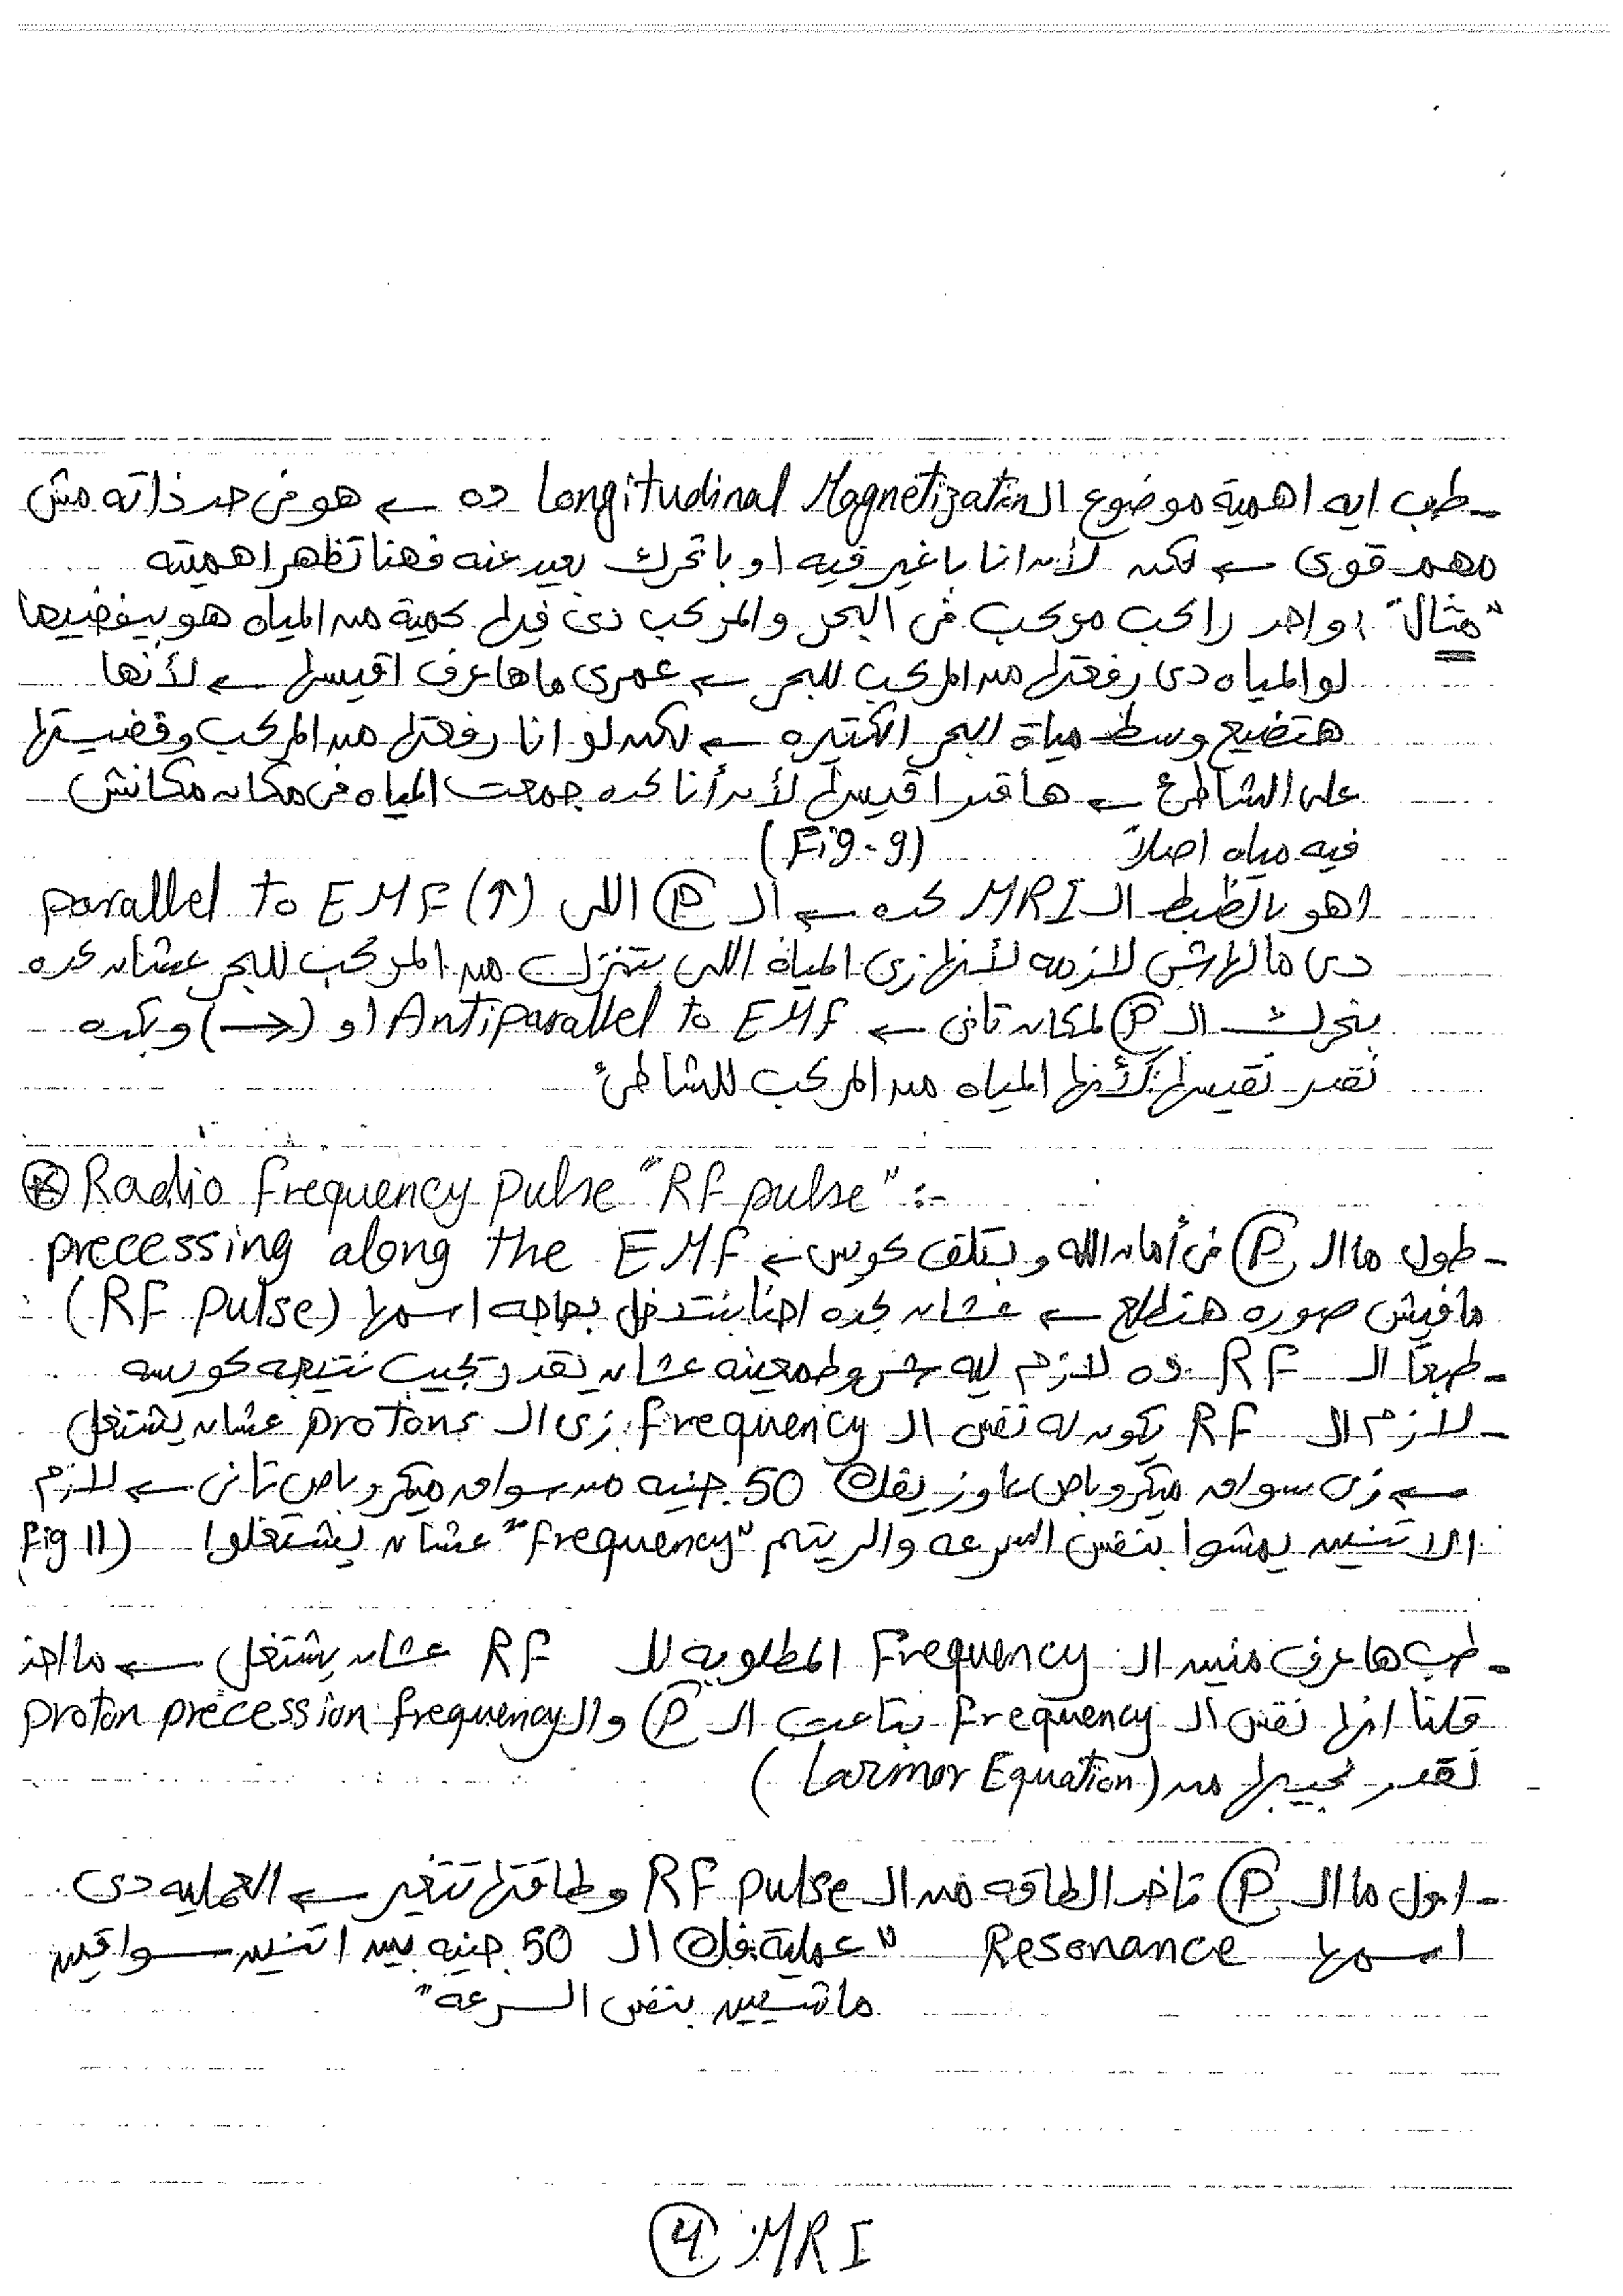 - طب ايه اهمية موضوع الـ Longitudinal Magnetization ده ← هو فى حد ذاته مش
مهم قوى ← لكن لأن انا باغير فيه او باتحرك بعيد عنه فهنا تظهر اهميته
"مثال" : واحد راكب مركب فى البحر والمركب دى فيها كمية من المياه هو بيفضيها
لو المياه دى رفعتها من المركب للبحر ← عمرى ما هاعرف اقيسها ← لأنها
هتضيع وسط مياة البحر الكتيره ← لكن لو انا رفعتها من المركب وفضيتها
على الشاطئ ← هاقدر اقيسها لأن أنا كده جمعت المياه فى مكان مكانش
فيه مياه اصلاً (Fig-9)
اهو بالظبط الـ MRI كده ← الـ (P) اللى (↑) parallel to EMF
دى مالهاش لازمه لأنها زى المياة اللى بتنزل من المركب للبحر عشان كده
بنحرك الـ (P) لمكان تانى ← Antiparallel to EMF او (→) وبكده
نقدر نقيسها كأنها المياه من المركب للشاطئ
⊛ Radio frequency pulse "RF pulse" :-
- طول ما الـ (P) فى أمان الله وبتلف كويس ← precessing along the EMF
مافيش صوره هتطلع ← عشان كده احنا بنتدخل بحاجه اسمها (RF pulse)
- طبعاً الـ RF ده لازم ليه شروط معينه عشان نقدر نجيب نتيجه كويسه
- لازم الـ RF تكون له نفس الـ frequency زى الـ protons عشان يشتغل
← زى سواق ميكروباص عاوز يفك 50 جنيه من سواق ميكروباص تانى ← لازم
الاتنين يمشوا بنفس السرعه والريتم "frequency" عشان يشتغلوا (fig 11
- طب هاعرف منين الـ Frequency المطلوبه للـ RF عشان يشتغل ← ما احنا
قلنا انها نفس الـ frequency بتاعت الـ (P) والـ proton precession frequency
نقدر نجيبها من (Larmor Equation)
- اول ما الـ (P) تاخد الطاقه من الـ RF pulse وطاقتها تتغير ← العمليه دى
اسمها Resonance "عملية فك الـ 50 جنيه بين اتنين سواقين
ماشيين بنفس السرعه"
④ MRI